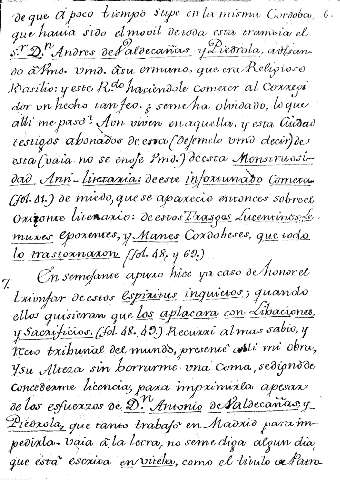 de que à poco tiempo supe en la misma Cordoba, 6.
que havia sido el movil de toda esta tramoia el
s.r D.n Andres de Valdecañas, y Piedrola, avisan-
do à Pms. vmd. à su ormano, que era Religioso
Basilio; y este R.do haciendole Cometer al Corregi
dor un hecho tan feo. ¿ se me ha olvidado, lo que
alli me pasó? Aun viven en aquella, y esta Ciudad
testigos abonados de esta (desemelo vmd decir) de
esta (vaia no se enoje Vmd.) de esta Monstruosi-
dad Anti-literaria: de este infortunado Cometa
(fol. 41.) de miedo, que se aparecio entonces sobre el
Orizonte literario: de estos Trasgos Lucentinos, Le-
mures eporenses, y Manes Cordobeses, que todo
lo trastornaron (fol. 48. y 69.)
7. En semejante apuro hice ya caso de honor el
triunfar de estos espiritus inquietos; y quando
ellos quisieran que los aplacara con Libaciones,
y Sacrificios. (fol. 48. 49.) Recurri al mas sabio, y
recto tribunal del mundo, presenté alli mi obra,
y su Alteza sin borrarme una Coma, se dignó de
concederme licencia, para imprimirla apesar
de los esfuerzos de D.n Antonio de Valdecañas, y
Piedrola, que tanto trabajó en Madrid para im-
pedirla. vaia à la letra, no se me diga algun dia,
que esta escrita en vitela, como el titulo de Patra